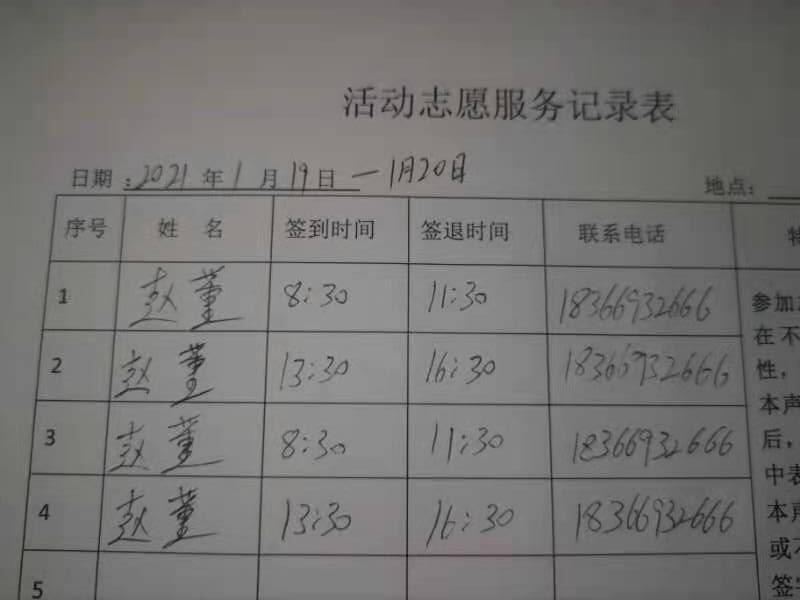 活动志愿服务记录表
日期：2021年1月19日—1月20日
地点：
序号 姓名 签到时间 签退时间 联系电话 特
1 赵董 8:30 11:30 18366932666
2 赵董 13:30 16:30 18366932666
3 赵董 8:30 11:30 18366932666
4 赵董 13:30 16:30 18366932666
5
参加
在不
性，
本声
后，
中表
本声
或不
签字